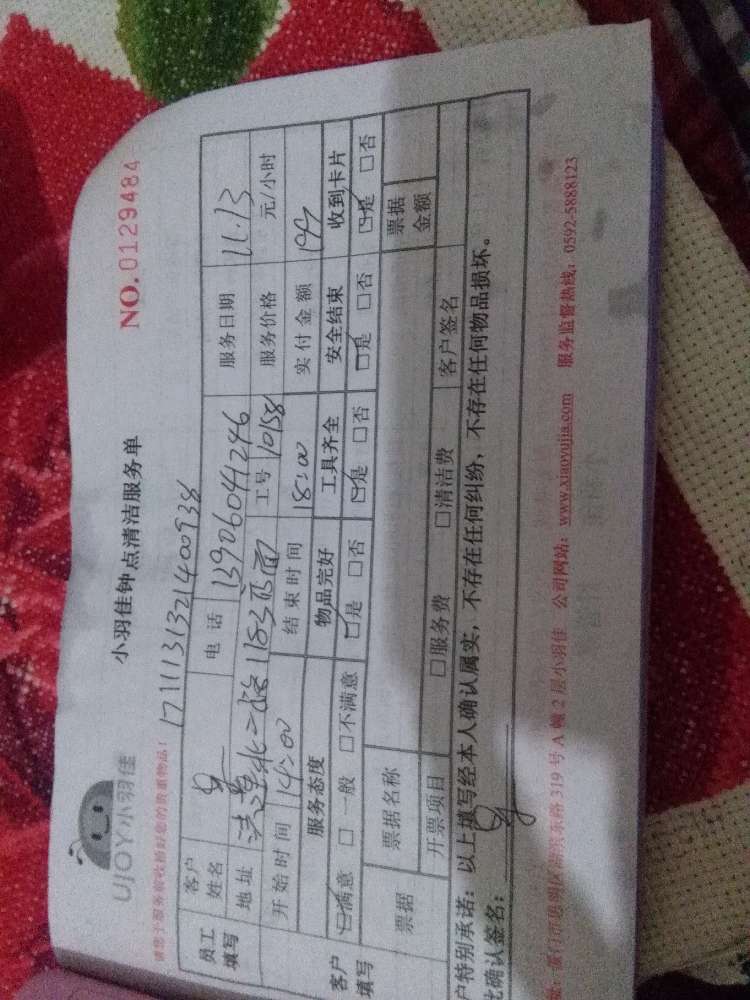 UJOY小羽佳
小羽佳钟点清洁服务单
NO.0129484
请您于服务前收拾好您的贵重物品!
1711131321400938
员工填写
客户姓名
电话 13906041246
服务日期 11.13
地址
工号 10158
服务价格 元/小时
开始时间 14:00
结束时间 18:00
实付金额
客户填写
服务态度 物品完好 工具齐全 安全结束 收到卡片
☑满意 □一般 □不满意 ☑是 □否 ☑是 □否 ☑是 □否 ☑是 □否
票据
票据名称
票据金额
开票项目 □服务费 □清洁费 客户签名
户特别承诺:以上填写经本人确认属实,不存在任何纠纷,不存在任何物品损坏。
此确认签名:
厦门市思明区湖滨东路319号A幢2层小羽佳 公司网站:www.xiaoyujia.com 服务监督热线:0592-5888123